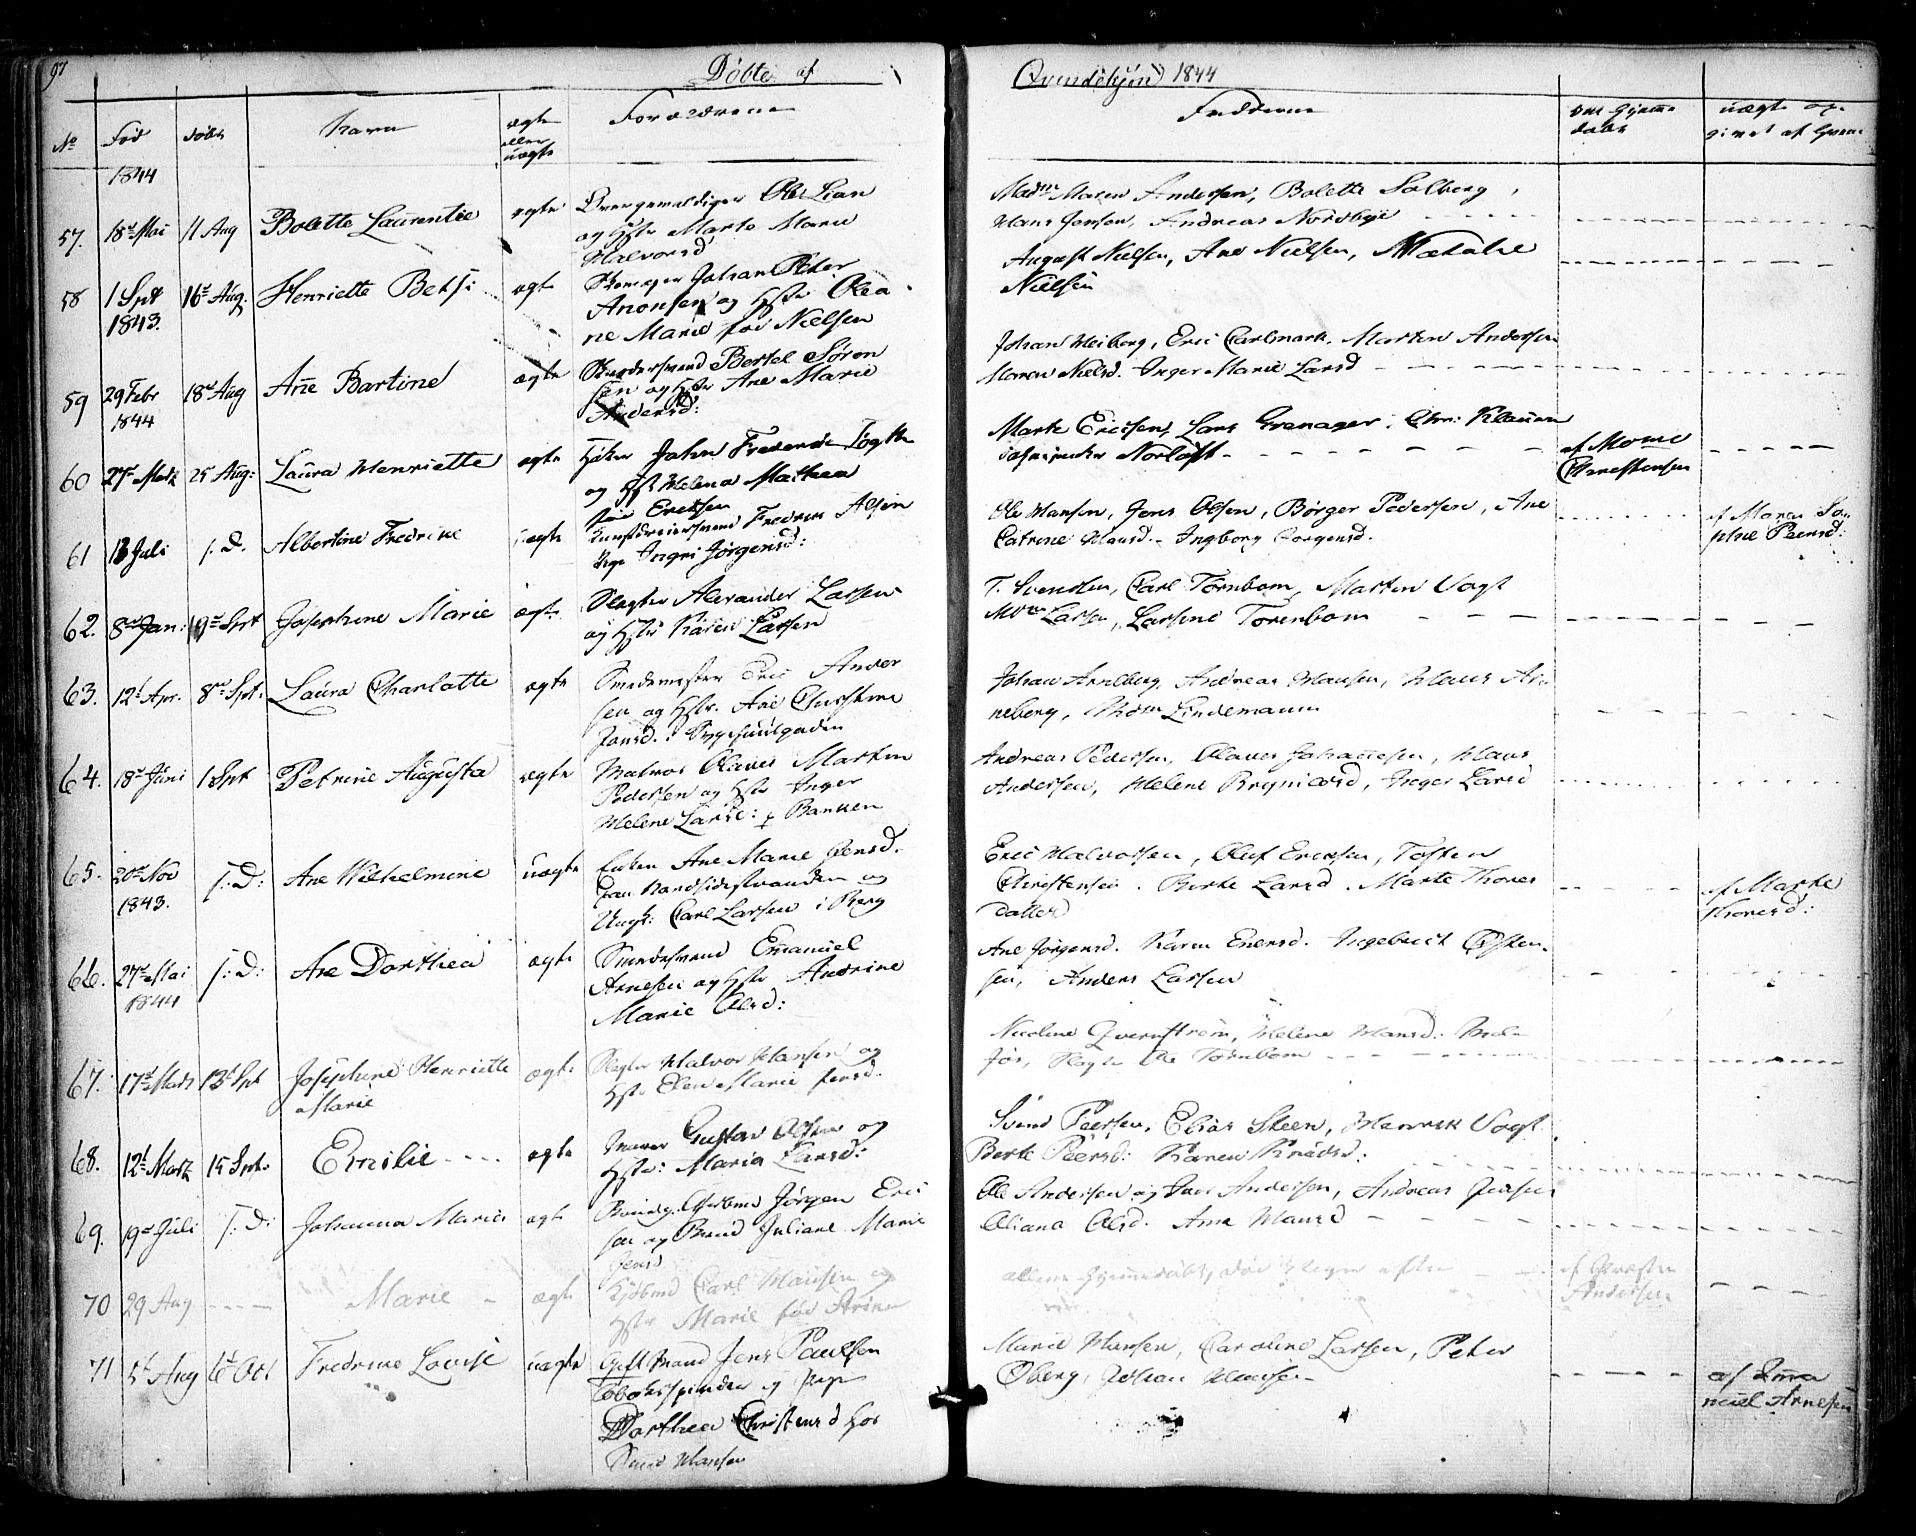 97
Døbte af
Qvindekjøn 1844
No
Fød
døbt
Navn
ægte
eller
uægte
Forældrene
Fadderne
om Hjemme
døbt
uægte op
givet af
1844
57. 18de Mai 11 Aug Bolette Laurentie ægte Ole Lian
og Hstr Marte Marie
Halvorsd
Madm Maren Andersen, Bolette Solberg,
Hans Jensen, Andreas Nordbye
58 1 Spt 16de Aug: Henriette Betsi ægte Johan Peter
1843. Aronsen og Hstr Olea
ne Marie fød Nielsen
August Nielsen, Ane Nielsen, Mathilde
Nielsen
59 29 Febr 18de Aug Ane Bartine ægte Bertel Søren
1844 sen og Hstr Ane Marie
Andersd:
Johan Heiberg, Eric Carlmark, Morten Andersen
Maren Nielsd. Inger Marie Larsd
60 27de Martz 25 Aug: Laura Henriette ægte Johan Frederik
og Hst Helena Mathea
fød Ericksen
Marte Ericsen, Lars Grenager, Chr: Klausen
Norløft
af Mome
Christensen
61 13 Juli s. D. Albertine Fredrine uægte Fredrik Olsen
Pige Ingri Jørgensd:
Ole Hansen, Jens Olsen, Børger Pedersen, Ane
Catrine Hansd. Ingborg Jørgensd.
af Maren So
phie Peersd:
62. 8de Jan: 19de Spt Josephine Marie ægte Slagter Alexander Larsen
og Hstr Karen Larsen
T. Svendsen, Carl Tornbom, Morten Vogt
Mdm Larsen, Larsine Torenbom
63. 12t Apr. 8de Spt: Laura Charlotte ægte Smedemester Eric Ander
sen og Hstr. Ane Christine
Jansd.
Johan Arneberg, Andreas Hansen, Hans Ar
neberg, Mdm Lindemann
64. 18de Juni 1 Spt Petrine Augusta ægte Matros Olaves Martin
Pedersen og Hstr Inger
Helene Larsd: p Bakken
Andreas Pedersen, Olaves Johannesen, Hans
Andersen, Helene Brynildsd, Inger Larsd
65. 20de Nov s: D: Ane Wilhelmine uægte Enken Ane Marie Jensd.
1843. og
Ungk: Carl Larsen i Berg
Eric Halvorsen, Oluf Ericksen, Tosten
Christensen. Berte Larsd. Marte Thores
datter
af Marte
Thoresd:
66. 27de Mai s: D: Ane Dorthea ægte Smedesvend Emanuel
1844 Arnesen og Hstr Andrine
Marie Olsd:
Ane Jørgensd. Karen Evensd. Ingebricht Østen
sen, Anders Larsen
67. 17de Marts 13t Spt Josephine Henriette ægte Slagter Halvor Hansen og
Marie Hstr Elen Marie Jensd.
Nicoline Qvernstrøm, Helene Hansd:
Slagter Ole Tornbom
68. 12t Martz 15 Spt. Emilie ægte Murer Gustav Olsen og
Hstr: Maria Larsd:
Svend Peersen, Elias Steen, Henrik Vogt
Berte Peersd: Karen Knudsd:
69. 19de Juli s: D: Johanna Maria ægte Jørgen Eric
sen og Juliane Marie
Jensd
Ole Andersen og Iver Andersen, Andreas Jensen
Oliana Olsd. Ane Hansd
70 29 Aug Marie ægte Carl Hansen og
Hstr Marie fød
allene Hjemmedøbt, døde efter
af
Andersen
71 5t Aug 6t Oct Fredrine Lovise uægte Gift Mand Jens Paulsen
Tobakspinder og Pige
Dorthea Christensd hos
Hansen
Marie Hansen, Caroline Larsen, Peter
Øberg, Johan Hansen
af Ema
nuel Arnesen